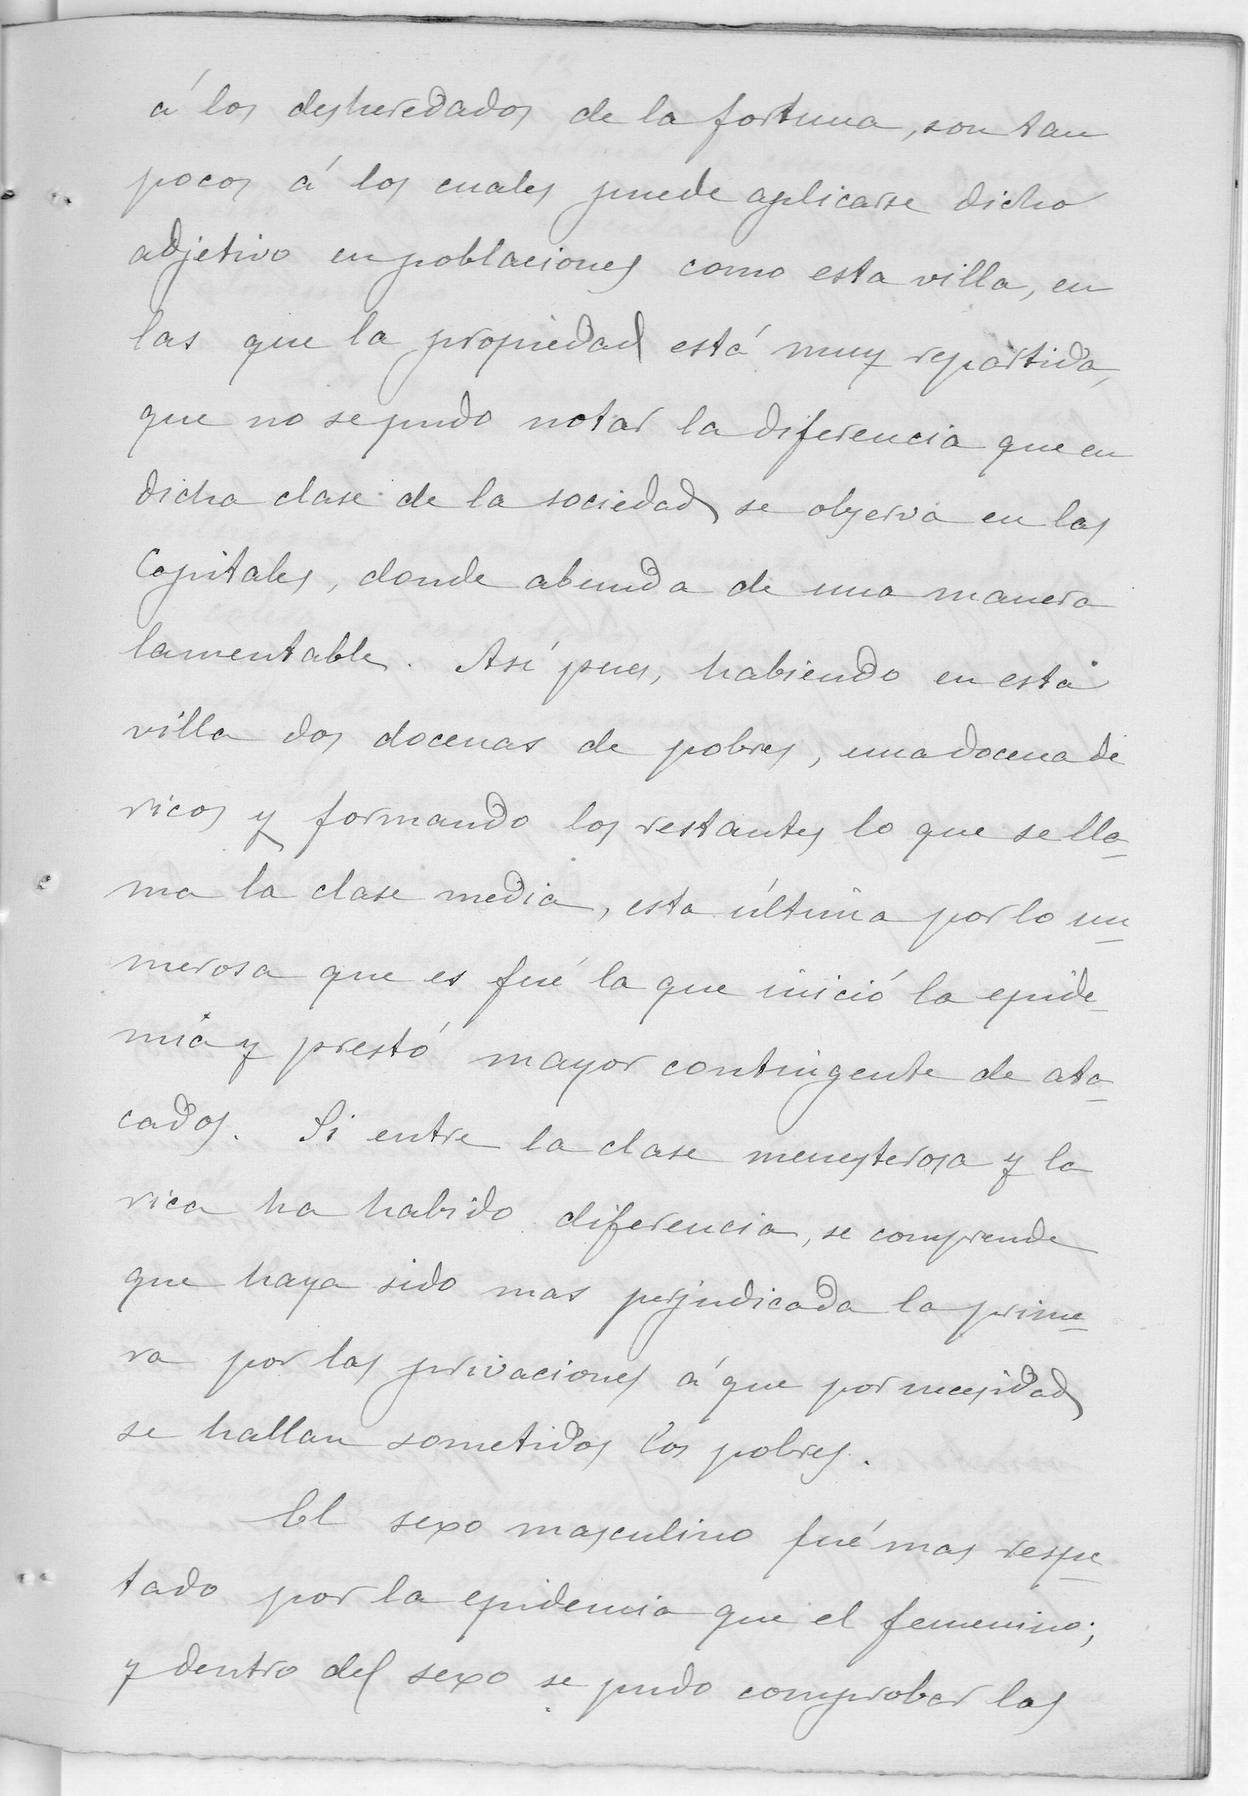 á los desheredados de la fortuna, son tan
pocos á los cuales puede aplicarse dicho
adjetivo en poblaciones como esta villa, en
las que la propiedad está muy repartida,
que no se pudo notar la diferencia que en
dicha clase de la sociedad se observa en las
Capitales, donde abunda de una manera
lamentable. Así pues, habiendo en esta
villa dos docenas de pobres, una docena de
ricos y formando los restantes lo que se lla-
ma la clase media, esta última por lo nu-
merosa que es fué la que inició la epide-
mia y prestó mayor contingente de ata-
cados. Si entre la clase menesterosa y la
rica ha habido diferencia, se comprende
que haya sido mas perjudicada la prime-
ra por las privaciones á que por necesidad
se hallan sometidos los pobres.
El sexo masculino fué mas respe-
tado por la epidemia que el femenino;
y dentro del sexo se pudo comprobar las